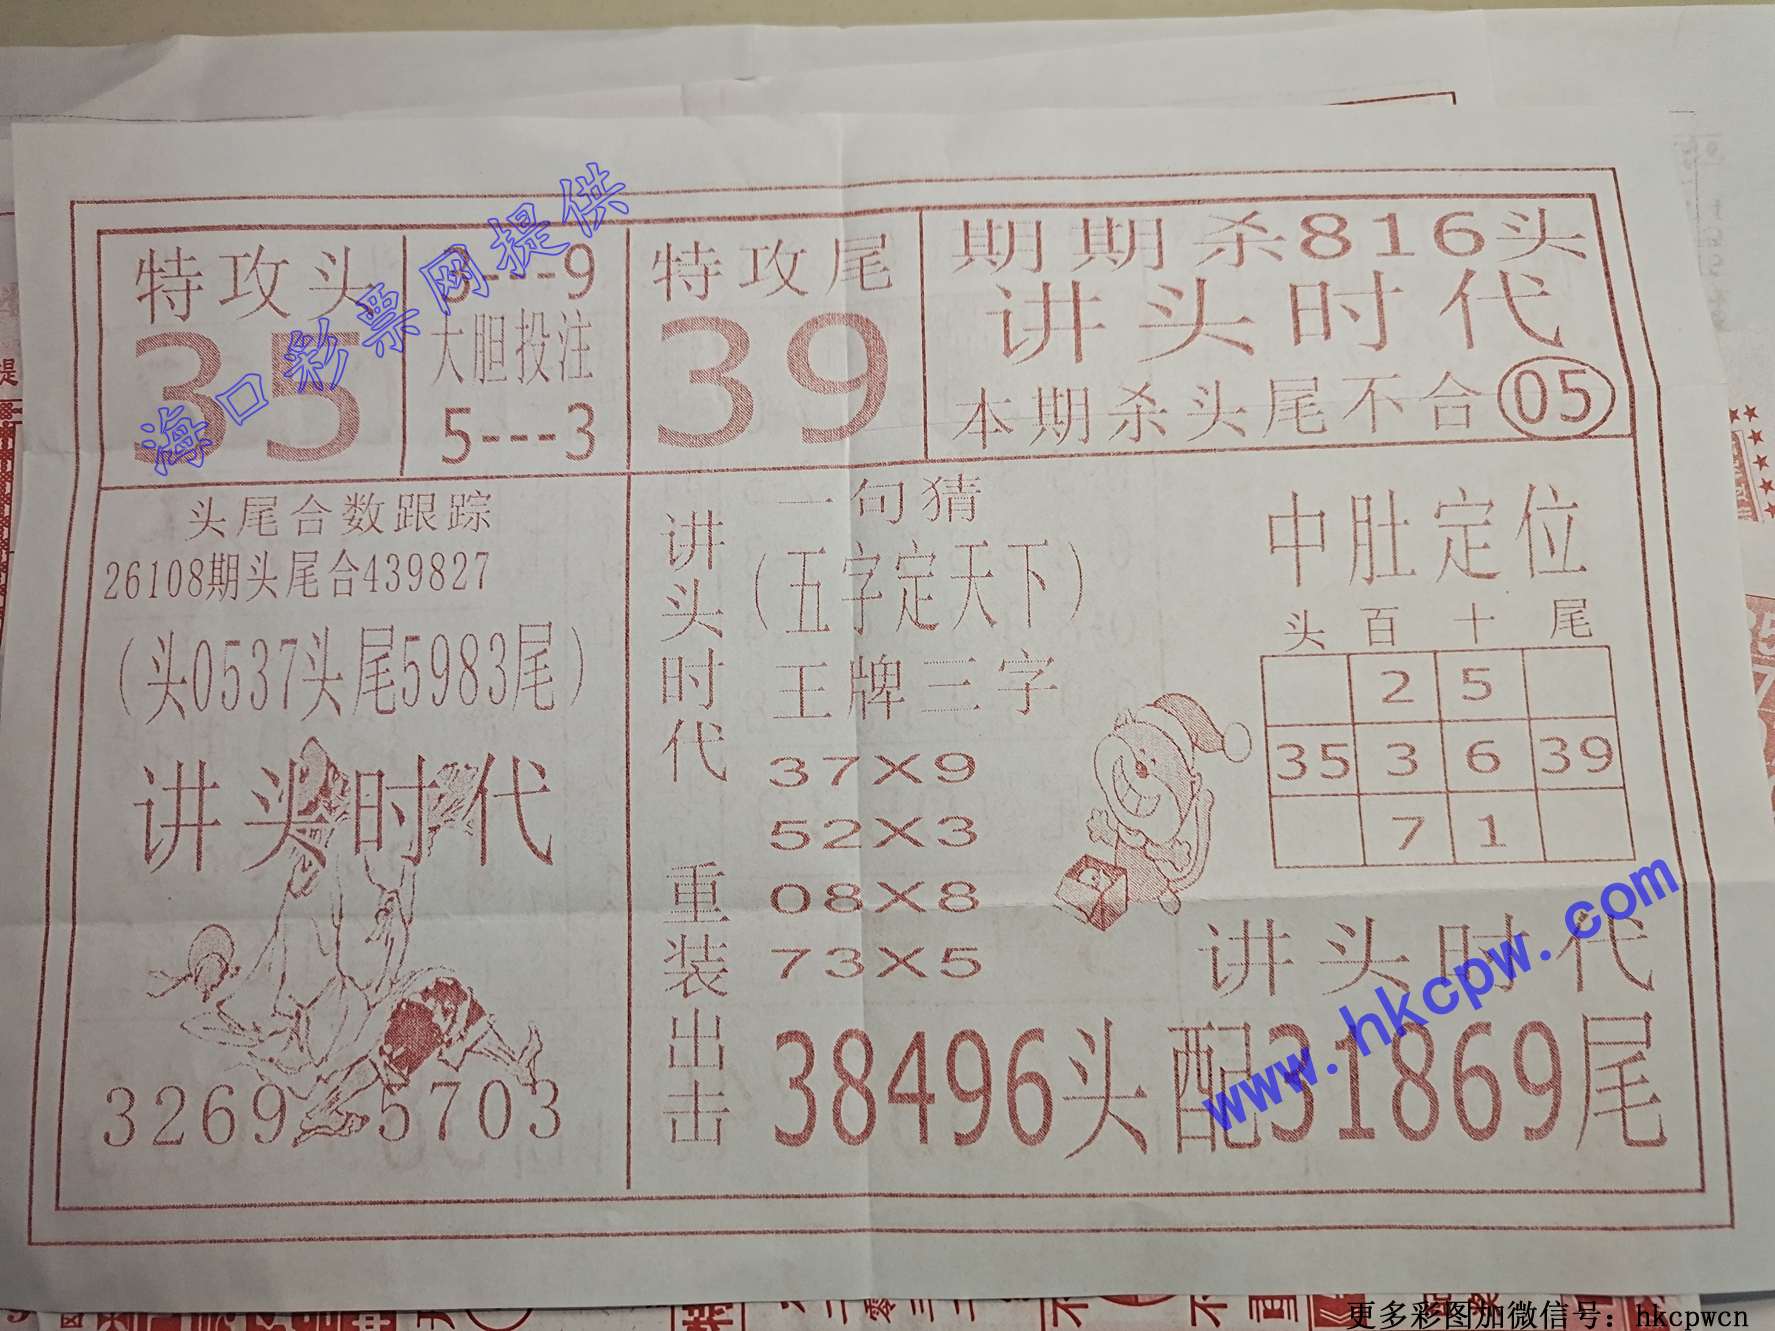 特攻头
35
3---9
大胆投注
5---3
特攻尾
39
期期杀816头
讲头时代
本期杀头尾不合 05
头尾合数跟踪
26108期头尾合439827
（头0537头尾5983尾）
讲头时代
3269 5703
讲头时代
重装出击
一句猜
（五字定天下）
王牌三字
37X9
52X3
08X8
73X5
中肚定位
头 百 十 尾
2 5
35 3 6 39
7 1
讲头时代
38496头配31869尾
海口彩票网提供
www.hkcpw.com
更多彩图加微信号：hkcpwcn